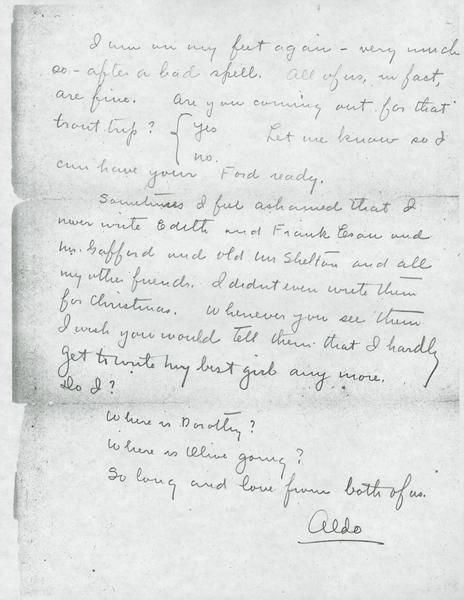 I am on my feet again - very much
so - after a bad spell. All of us, in fact,
are fine. Are you coming out for that
trout trip? { yes Let me know so I
no.
can have your Ford ready.
Sometimes I feel ashamed that I
never write Edith and Frank and
Mr. Gafford and old Mr Shelton and all
my other friends. I didn't even write them
for Christmas. Whenever you see them
I wish you would tell them that I hardly
get to write my best girl any more.
Do I?
Where is Dorothy?
Where is Olive going?
So long and love from both of us.
Aldo